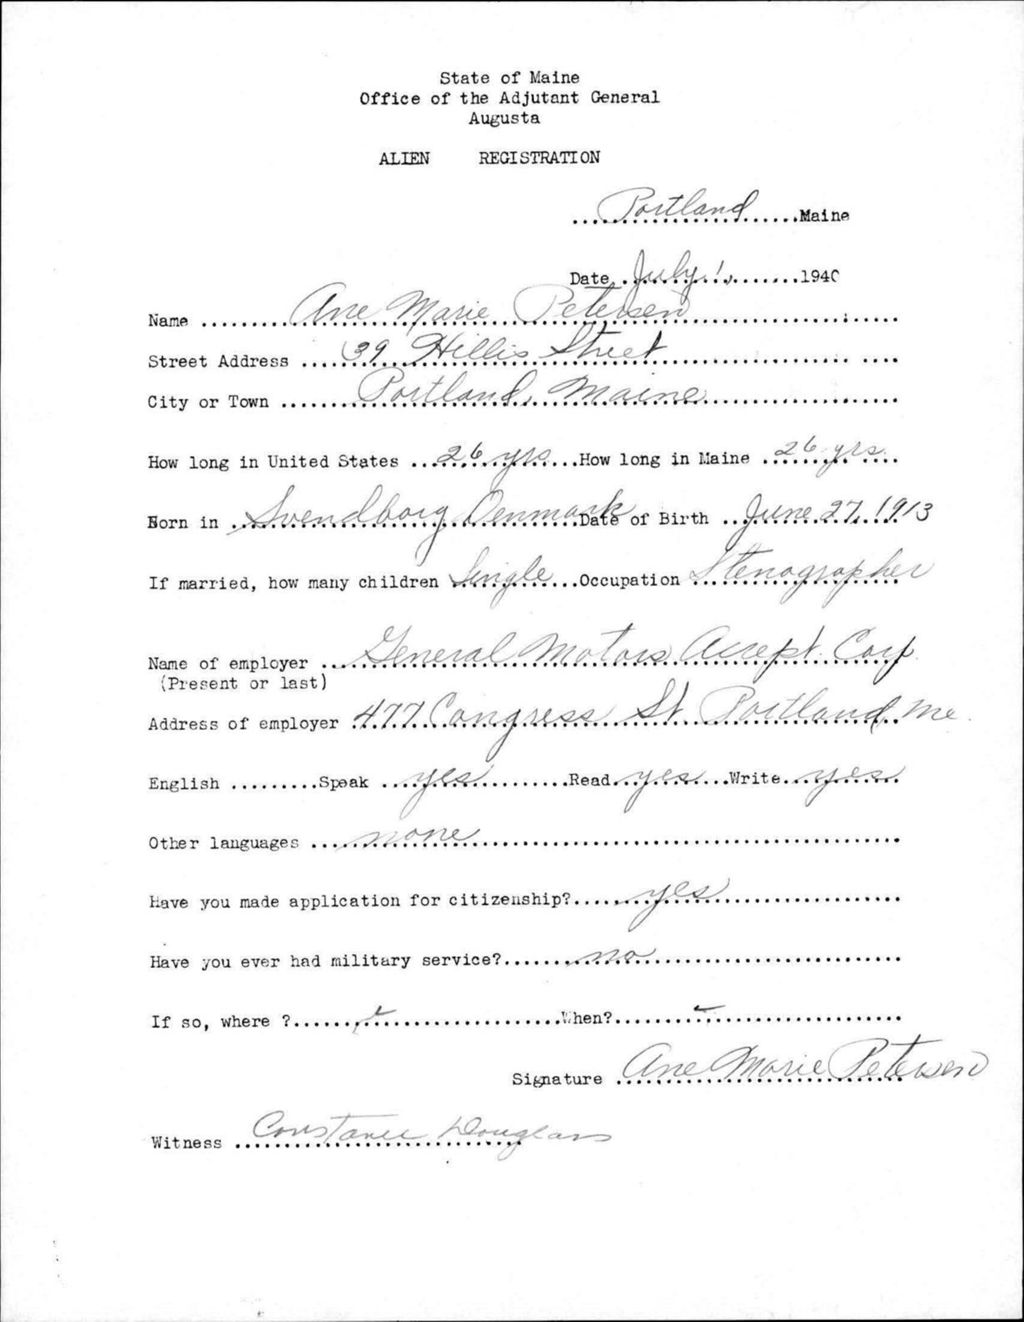 State of Maine
Office of the Adjutant General
Augusta
ALIEN REGISTRATION
Portland Maine
Date July 1, 1940
Name Ane Marie Petersen
Street Address 39 Hillis Street
City or Town Portland, Maine
How long in United States 26 yrs How long in Maine 26 yrs.
Born in Svendborg Denmark Date of Birth June 27, 1913
If married, how many children Single Occupation Stenographer
Name of employer General Motors Accept. Corp.
(Present or last)
Address of employer 477 Congress St. Portland, Me.
English Speak yes Read yes Write yes
Other languages none
Have you made application for citizenship? yes
Have you ever had military service? no
If so, where ? When?
Signature Ane Marie Petersen
Witness Constance Douglass